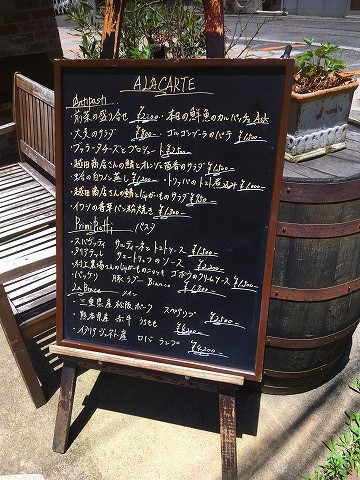 ALACARTE
Antipasti
・前菜の盛り合せ ¥2,200 ・本日の鮮魚のカルパッチョ Ask
・大麦のサラダ ¥800 ・ゴルゴンゾーラのパテ ¥1,500
・ブッラータチーズとプロシュート ¥2,500
・越田商店さんの鯖とオレンジと茴香のサラダ ¥1,500
の白ワイン蒸し ¥1,200 ・トリッパのトマト煮込み ¥1,000
・越田商店さんの鯖とじゃがいものサラダ ¥950
・イワシの香草パン粉焼き ¥1,300
Primi Piatti パスタ
・スパゲッティ サルディーネとトマトソース ¥1,500
・タリアテッレ ソース ¥2,200
・村上農場さんのじゃがいものニョッキ ゴボウのクリームソース ¥1,500
豚ラグー Bianco ¥1,800
メイン
・三重県産 松阪ポーク スペアリブ ¥2,500
・熊本県産 赤牛 うちもも ¥3,200
・イタリア ヴェネト産 ロバ ランプ ¥4,200